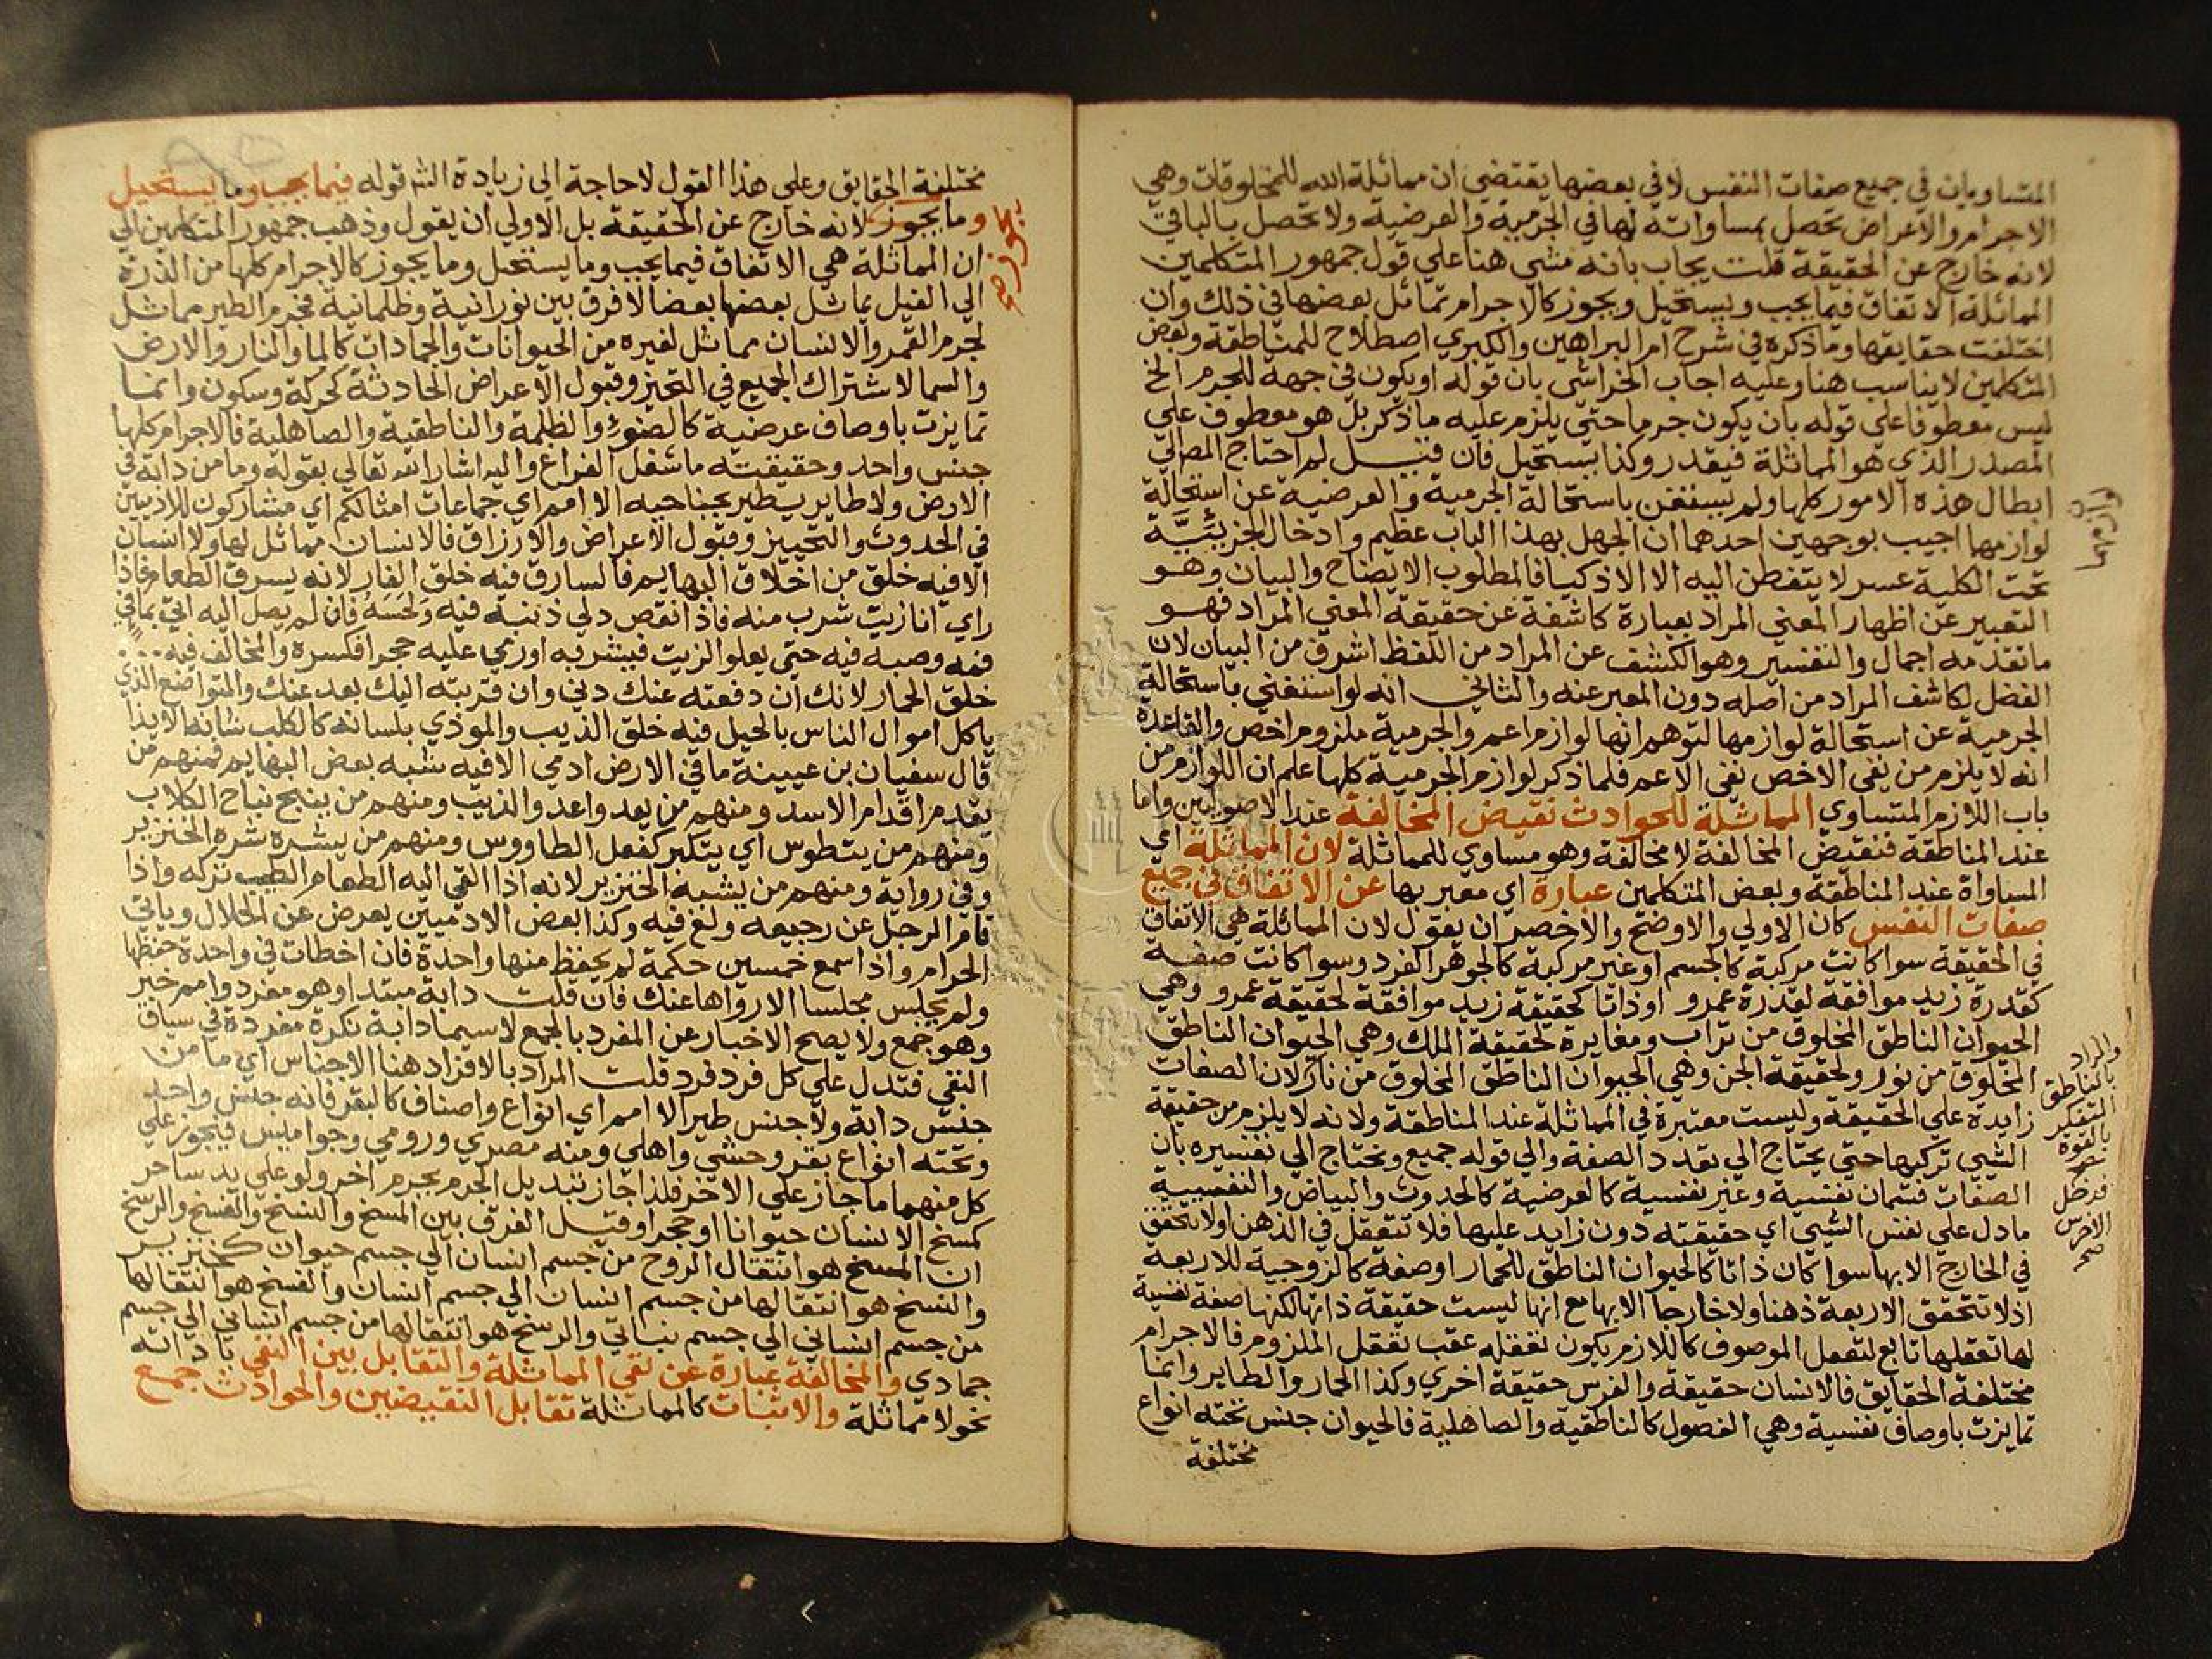 المتساويان في جميع صفات النفس لا في بعضها يقتضي ان مماثلة الله للمخلوقات وهي
الاجرام والاعراض تحصل بمساواته لها في الجرمية والعرضية ولا تحصل بالباقي
لانه خارج عن الحقيقة قلت يجاب بانه مشي هنا علي قول جمهور المتكلمين
المماثلة الاتفاق فيما يجب ويستحيل ويجوز كالاجرام تماثل بعضها في ذلك وان
اختلفت حقايقها وما ذكره في شرح ام البراهين والكبري اصطلاح للمناطقة وبعض
المتكلمين لا يناسب هنا وعليه اجاب الخراشي بان قوله او يكون في جهة للجرم الخ
ليس معطوفا علي قوله بان يكون جرما حتي يلزم عليه ما ذكر بل هو معطوف علي
المصدر الذي هو المماثلة فيقدر وكذا يستحيل فان قيل لم احتاج المص الي
ابطال هذه الامور كلها ولم يستغن باستحالة الجرمية والعرضية عن استحالة
لوازمها اجيب بوجهين احدهما ان الجهل بهذا الباب عظيم وادخال الجزيئية
تحت الكلية عسر لا يتفطن اليه الا الاذكيا فالمطلوب الايضاح والبيان وهو
التعبير عن اظهار المعني المراد بعبارة كاشفة عن حقيقة المعني المراد فهو
ما تقدمه اجمال والتفسير وهو الكشف عن المراد من اللفظ اشرف من البيان لان
الفضل لكاشف المراد من اصله دون المعبر عنه والثاني انه لو استغني باستحالة
الجرمية عن استحالة لوازمها لتوهم انها لوازم اعم والجرمية ملزوم اخص والقاعدة
انه لا يلزم من نفي الاخص نفي الاعم فلما ذكر لوازم الجرمية كلها علم ان اللوازم من
باب اللازم المتساوي المماثلة للحوادث نقيض المخالفة عند الاصوليين واما
عند المناطقة فنقيض المخالفة لا مخالفة وهو مساوي للمماثلة لان المماثلة اي
المساواة عند المناطقة وبعض المتكلمين عبارة اي معبر بها عن الاتفاق في جميع
صفات النفس كان الاولي والاوضح والاخصر ان يقول لان المماثلة هي الاتفاق
في الحقيقة سوا كانت مركبة كالجسم او غير مركبة كالجوهر الفرد وسوا كانت صفة
كقدرة زيد موافقة لقدرة عمرو او ذاتا كحقيقة زيد موافقة لحقيقة عمرو وهي
الحيوان الناطق المخلوق من تراب ومغايرة لحقيقة الملك وهي الحيوان الناطق
المخلوق من نور ولحقيقة الجن وهي الحيوان الناطق المخلوق من نار لان الصفات
زايدة علي الحقيقة وليست معتبرة في المماثلة عند المناطقة ولانه لا يلزم من حقيقة
الشي تركبها حتي يحتاج الي تعدد الصفة والي قوله جميع ويحتاج الي تفسيره بان
الصفات قسمان نفسية وغير نفسية كالعرضية كالحدوث والبياض والنفسية
ما دل علي نفس الشي اي حقيقته دون زايد عليها فلا تتعقل في الذهن او لا تتحقق
في الخارج الا بها سوا كان ذاتا كالحيوان الناطق للحمار او صفة كالزوجية للاربعة
اذ لا تتحقق الاربعة ذهنا ولا خارجا الا بها مع انها ليست حقيقة ذاتها لكنها صفة نفسية
لها تعقلها تابع لتعقل الموصوف كاللازم يكون تعقله عقب تعقل الملزوم فالاجرام
مختلفة الحقايق فالانسان حقيقة والفرس حقيقة اخري وكذا الحمار والطاير وانما
تمايزت باوصاف نفسية وهي الفصول كالناطقية والصاهلية فالحيوان جنس تحته انواع
مختلفة
والمراد
بالناطق
المتفكر
بالقوة
فدخل
الاخرس
صح
مختلفة الحقايق وعلي هذا القول لا حاجة الي زيادة الشر قوله فيما يجب وما يستحيل
وما يجوز لانه خارج عن الحقيقة بل الاولي ان يقول وذهب جمهور المتكلمين الي
ان المماثلة هي الاتفاق فيما يجب وما يستحيل وما يجوز كالاجرام كلها من الذرة
الي الفيل يماثل بعضها بعضا لا فرق بين نورانية وظلمانية فجرم الطير مماثل
لجرم القمر والانسان مماثل لغيره من الحيوانات والجمادات كالما والنار والارض
والسما لاشتراك الجميع في التحيز وقبول الاعراض الحادثة كحركة وسكون وانما
تمايزت باوصاف عرضية كالضوء والظلمة والناطقية والصاهلية فالاجرام كلها
جنس واحد وحقيقته ما شغل الفراغ واليه اشار الله تعالي بقوله وما من دابة في
الارض ولا طاير يطير بجناحيه الا امم اي جماعات امثالكم اي مشاركون للادميين
في الحدوث والتحييز وقبول الاعراض والارزاق فالانسان مماثل لها ولا انسان
الا فيه خلق من اخلاق البهايم فالسارق فيه خلق الفار لانه يسرق الطعام فاذا
راي انا زيت شرب منه فاذا نقص دلي ذنبه فيه ولحسه فان لم يصل اليه اتي بما في
فمه وصبه فيه حتي يعلو الزيت فيشربه او رمي عليه حجرا فكسره والمخالف فيه
خلق الحمار لانك ان دفعته عنك دني وان قربته اليك بعد عنك والمتواضع الذي
ياكل اموال الناس بالحيل فيه خلق الذيب والموذي بلسانه كالكلب شانه الايذا
قال سفيان بن عيينة ما في الارض ادمي الا فيه شبه بعض البهايم فمنهم من
يقدم اقدام الاسد ومنهم من يعدوا عدو الذيب ومنهم من ينبح نباح الكلاب
ومنهم من يتطوس اي يتكبر كفعل الطاووس ومنهم من يشره شره الخنزير
وفي رواية ومنهم من يشبه الخنزير لانه اذا القي اليه الطعام الطيب تركه واذا
قام الرجل عن رجيعه ولغ فيه وكذا بعض الادميين يعرض عن الحلال وياتي
الحرام واذا سمع خمسين حكمة لم يحفظ منها واحدة فان اخطات في واحدة حفظها
ولم يجلس مجلسا الا رواها عنك فان قلت دابة مبتدا وهو مفرد وامم خبر
وهو جمع ولا يصح الاخبار عن المفرد بالجمع لا سيما دابة نكرة مفردة في سياق
النفي فتدل علي كل فرد فرد قلت المراد بالافراد هنا الاجناس اي ما من
جنس دابة ولا جنس طير الا امم اي انواع واصناف كالبقر فانه جنس واحد
وتحته انواع بقر وحشي واهلي ومنه مصري ورومي وجواميس فيجوز علي
كل منهما ما جاز علي الاخر فلذا جاز تبديل الجرم بجرم اخر ولو علي يد ساحر
كمسخ الانسان حيوانا او حجرا وقيل الفرق بين المسخ والنسخ والفسخ والرسخ
ان المسخ هو انتقال الروح من جسم انسان الي جسم حيوان كخنزير
والنسخ هو انتقالها من جسم انسان الي جسم انسان والفسخ هو انتقالها
من جسم انساني الي جسم نباتي والرسخ هو انتقالها من جسم انساني الي جسم
جمادي والمخالفة عبارة عن نفي المماثلة والتقابل بين النفي باداته
نحو لا مماثلة والاثبات كالمماثلة تقابل النقيضين والحوادث جمع